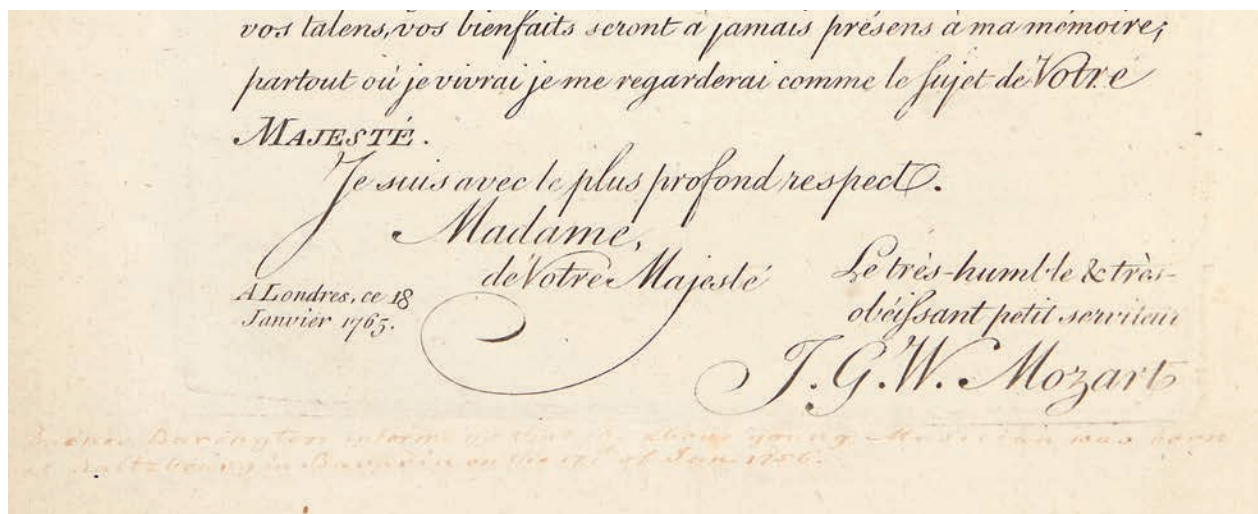 vos talens, vos bienfaits seront à jamais présens à ma mémoire;
partout où je vivrai je me regarderai comme le sujet de Votre
MAJESTÉ.
Je suis avec le plus profond respect.
Madame,
de Votre Majesté
A Londres, ce 18
Janvier 1765.
Le très-humble & très-
obéissant petit serviteur
J. G. W. Mozart
Barington informs me that the above young Musician was born
at Saltzbourg in Bavaria on the 17th of Jan. 1756.